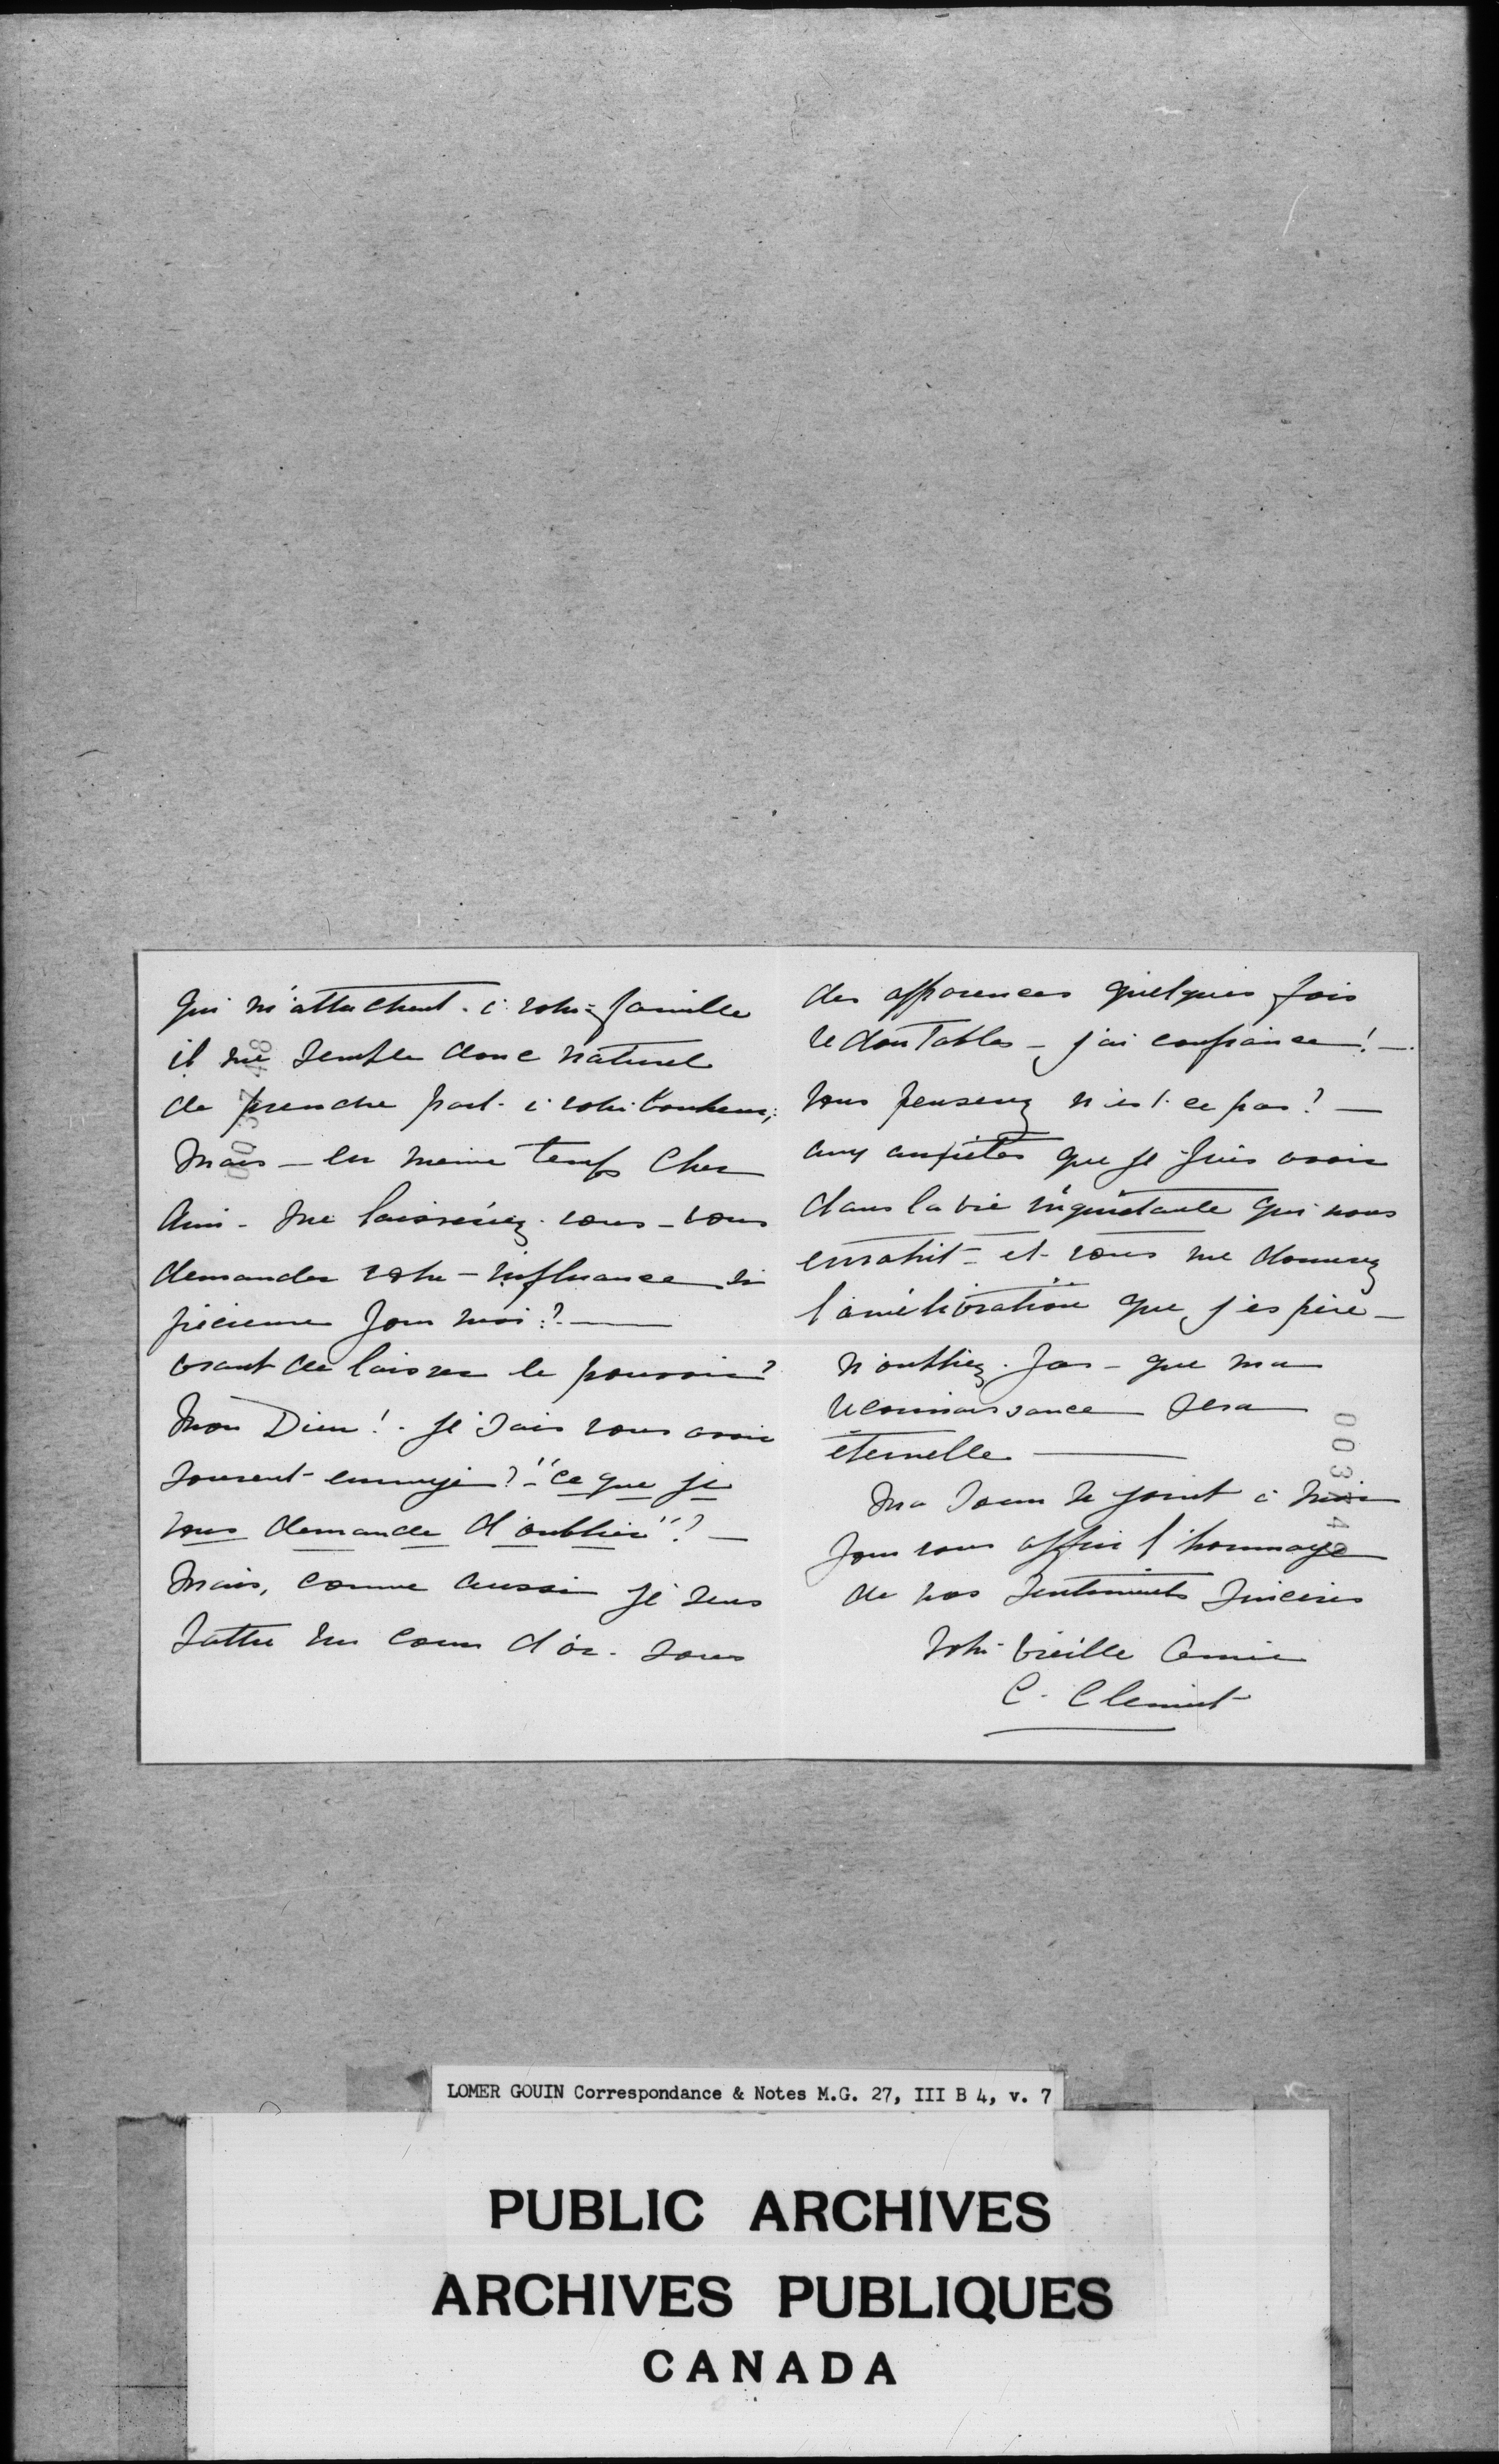 qui m'attachent à votre famille
il me semble donc naturel
de prendre part à votre bonheur;
Mais – en même temps Cher
Ami – me laisserez-vous – vous
demander votre – influence si
précieuse pour moi?
avant de laisser le pouvoir?
Mon Dieu! – je sais vous avoir
souvent ennuyé? – "ce que je
vous demande d'oublier"? –
Mais, comme aussi je sens
battre un cœur d'or – sous
des apparences quelques fois
redoutables – j'ai confiance! –
Vous penserez n'est-ce pas? –
aux anxiétés que je puis avoir
dans la vie inquiétante qui nous
envahit – et vous me donnerez
l'amélioration que j'espère –
N'oubliez pas – que ma
reconnaissance sera
éternelle
Ma sœur se joint à moi
pour vous offrir l'hommage
de nos sentiments sincères
Votre vieille Amie
C. Clement
LOMER GOUIN Correspondance & Notes M.G. 27, III B 4, v. 7
PUBLIC ARCHIVES
ARCHIVES PUBLIQUES
CANADA